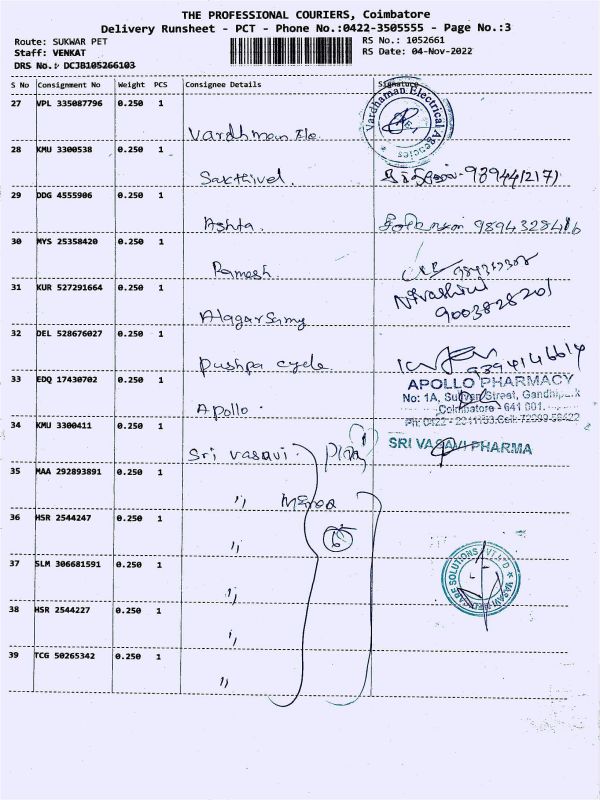 THE PROFESSIONAL COURIERS, Coimbatore
Delivery Runsheet - PCT - Phone No.:0422-3505555 - Page No.:3
Route: SUKWAR PET
RS No.: 1052661
Staff: VENKAT
RS Date: 04-Nov-2022
DRS No.: DCJB105266103
S No Consignment No Weight PCS Consignee Details Signature
27 VPL 335087796 0.250 1
Vardhman Ele.
Vardhaman Electrical Agencies
28 KMU 3300538 0.250 1
Sakthivel.
29 DDG 4555906 0.250 1
Ashta. 9894328416
30 MYS 25358420 0.250 1
Ramesh
31 KUR 527291664 0.250 1
Nivashini
9003828201
Alagarsamy
32 DEL 528676027 0.250 1
Pushpa cycle 9394146614
33 EDQ 17430702 0.250 1
Apollo.
APOLLO PHARMACY
No: 1A, Street, Gandhipark
Coimbatore - 641 001.
34 KMU 3300411 0.250 1
Sri vasavi.
SRI VASAVI PHARMA
35 MAA 292893891 0.250 1
"
36 HSR 2544247 0.250 1
" 6
37 SLM 306681591 0.250 1
"
38 HSR 2544227 0.250 1
"
39 TCG 50265342 0.250 1
"